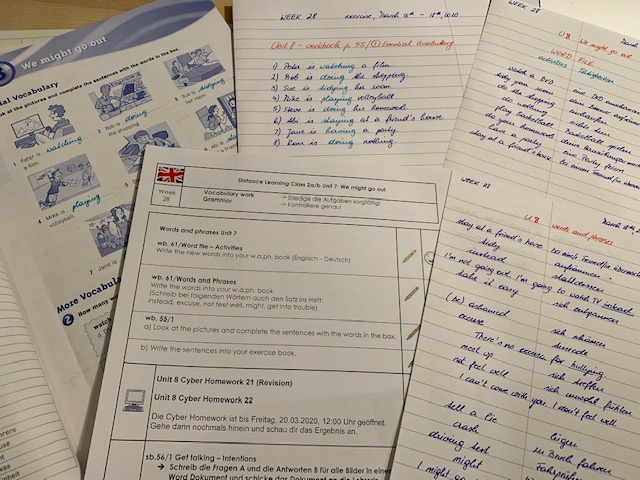 3 We might go out
al Vocabulary
k at the pictures and complete the sentences with the words in the box.
1 Peter is watching
a film.
2 Bob is doing
the shopping.
3 Sue is tidying
her room.
4 Mike is playing
volleyball.
7 Jane is
More Vocabula
2 How many w
watch
WEEK 28
exercise, March 16th - 18th, 2020
Unit 8 - workbook p. 55/① Essential Vocabulary
1) Peter is watching a film.
2) Bob is doing the shopping.
3) Sue is tidying her room.
4) Mike is playing volleyball.
5) Steve is doing his homework.
6) Abi is staying at a friend's house.
7) Jane is having a party.
8) Ron is doing nothing.
WEEK 28
U8 We might go out
WORD FILE
activities
watch a DVD
tidy your room
do the shopping
do nothing
play basketball
do your homework
have a party
stay at a friend's house
eine DVD anschauen
einkaufen
nichts tun
Basketball spielen
eine Party feiern
WEEK 28
U8 words and phrases
stay at a friend's house
tidy
aufräumen
instead
stattdessen
I'm not going out. I'm going to watch TV instead.
take it easy
sich entspannen
(be) ashamed
sich schämen
excuse
Ausrede
There's no excuse for bullying.
meet up
sich treffen
not feel well
sich unwohl fühlen
I can't come with you. I don't feel well.
tell a lie
lügen
crash
zu Bruch fahren
driving test
might
I might go
Distance Learning Class 2a/b Unit 7: We might go out
Week
28
Vocabulary work
Grammar
-> Erledige die Aufgaben sorgfältig!
-> Kontrolliere genau!
Words and phrases Unit 7
wb. 61/Word file – Activities
Write the new words into your w.a.ph. book (Englisch – Deutsch)
wb. 61/Words and Phrases
Write the words into your w.a.ph. book.
(Schreib bei folgenden Wörtern auch den Satz ins Heft:
instead, excuse, not feel well, might, get into trouble)
wb. 55/1
a) Look at the pictures and complete the sentences with the words in the box.
b) Write the sentences into your exercise book.
Unit 8 Cyber Homework 21 (Revision)
Unit 8 Cyber Homework 22
Die Cyber Homework ist bis Freitag, 20.03.2020, 12:00 Uhr geöffnet.
Gehe dann nochmals hinein und schau dir das Ergebnis an.
sb.56/1 Get talking – Intentions
→ Schreib die Fragen A und die Antworten B für alle Bilder in einer